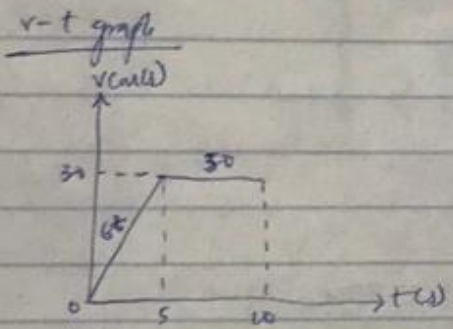 v-t graph
v(m/s)
30
30
6t
0
5
10
t(s)